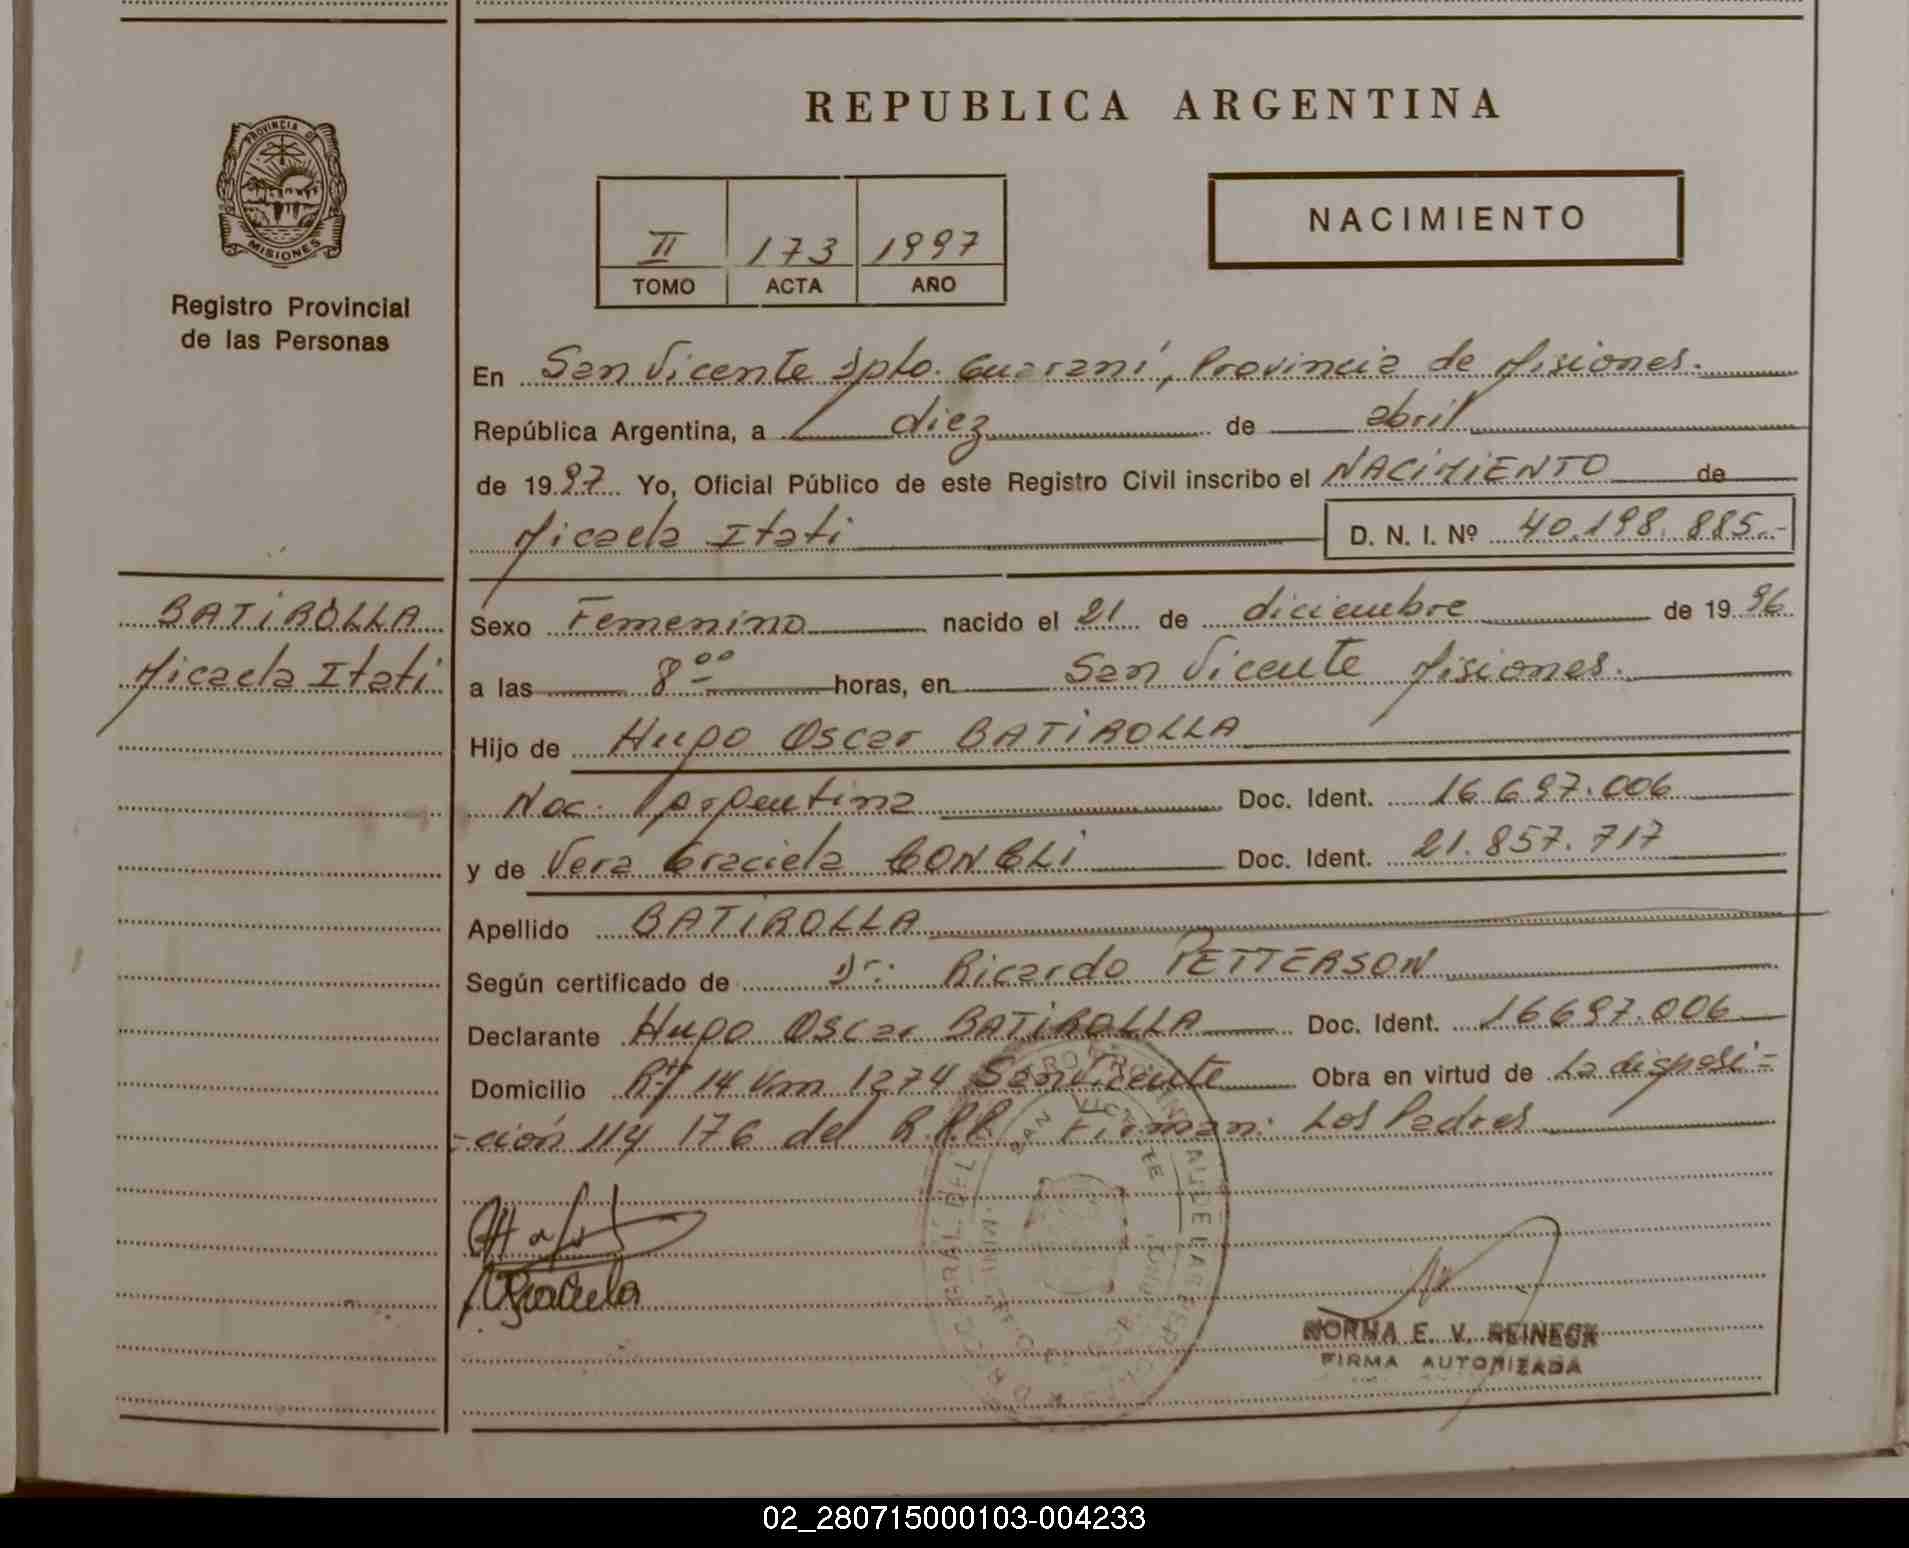 REPUBLICA ARGENTINA
PROVINCIA DE
MISIONES
Registro Provincial
de las Personas
II 173 1997
TOMO ACTA AÑO
NACIMIENTO
En San Vicente Dpto. Guaraní, Provincia de Misiones.
República Argentina, a diez de abril
de 1997 Yo, Oficial Público de este Registro Civil inscribo el NACIMIENTO de
Micaela Itati D. N. I. Nº 40.198.885.-
BATIROLLA
Micaela Itati
Sexo Femenino nacido el 21 de diciembre de 1996
a las 8 00 horas, en San Vicente Misiones.
Hijo de Hugo Oscar BATIROLLA
Nac. Argentina Doc. Ident. 16.697.006
y de Vera Graciela Doc. Ident. 21.857.717
Apellido BATIROLLA
Según certificado de Dr. Ricardo PETTERSON
Declarante Hugo Oscar BATIROLLA Doc. Ident. 16697.006
Domicilio 14 Km 1274 San Vicente Obra en virtud de La disposi=
-ción 114 176 del R.P.P. Firman: Los Padres
SAN VICENTE
Graciela
NORMA E. V. REINECK
FIRMA AUTORIZADA
02_280715000103-004233